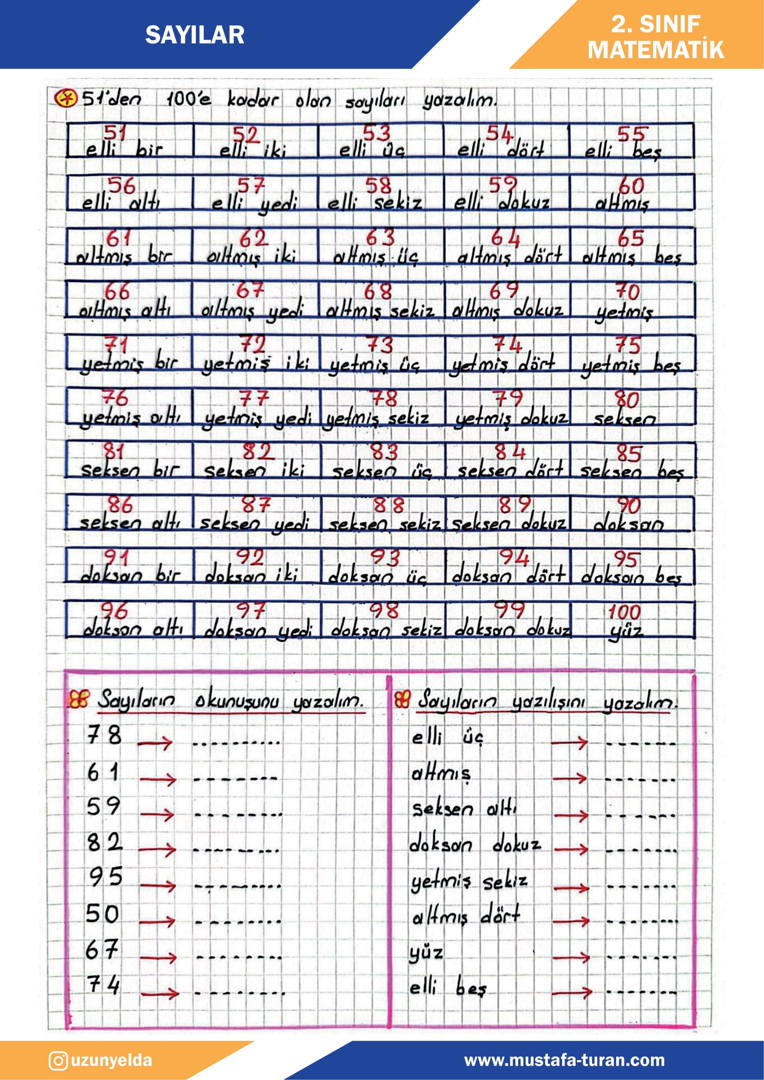 SAYILAR
2. SINIF
MATEMATİK
51'den 100'e kadar olan sayıları yazalım.
51 52 53 54 55
elli bir elli iki elli üç elli dört elli beş
56 57 58 59 60
elli altı elli yedi elli sekiz elli dokuz altmış
61 62 63 64 65
altmış bir altmış iki altmış üç altmış dört altmış beş
66 67 68 69 70
altmış altı altmış yedi altmış sekiz altmış dokuz yetmiş
71 72 73 74 75
yetmiş bir yetmiş iki yetmiş üç yetmiş dört yetmiş beş
76 77 78 79 80
yetmiş altı yetmiş yedi yetmiş sekiz yetmiş dokuz seksen
81 82 83 84 85
seksen bir seksen iki seksen üç seksen dört seksen beş
86 87 88 89 90
seksen altı seksen yedi seksen sekiz seksen dokuz doksan
91 92 93 94 95
doksan bir doksan iki doksan üç doksan dört doksan beş
96 97 98 99 100
doksan altı doksan yedi doksan sekiz doksan dokuz yüz
Sayıların okunuşunu yazalım.
78 → ..........
61 → -------
59 → --------
82 → --------
95 → --------
50 → --------
67 → --------
74 → --------
Sayıların yazılışını yazalım.
elli üç → ------
altmış → -------
seksen altı → ------
doksan dokuz → -------
yetmiş sekiz → ------
altmış dört → ------
yüz → ------
elli beş → -------
uzunyelda
www.mustafa-turan.com